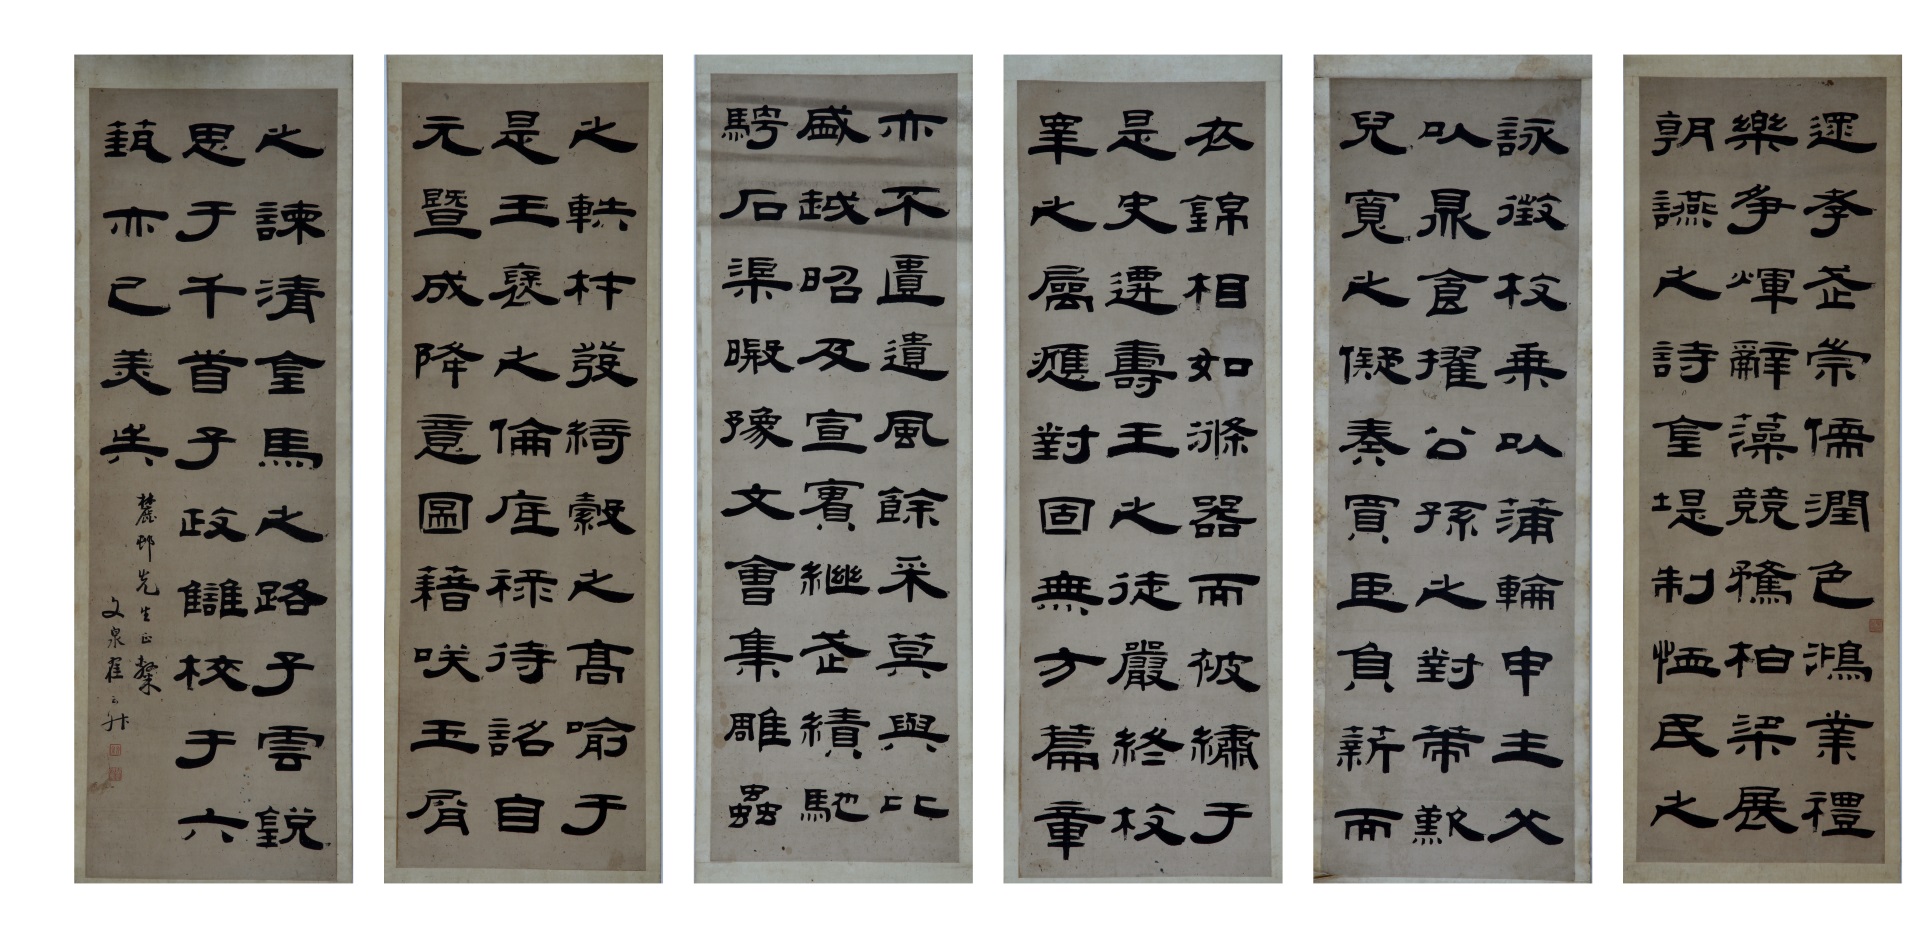 逮孝武崇儒潤色鴻業禮
樂爭煇辭藻競騖柏梁展
朝讌之詩金堤制恤民之
詠徵枚乘以蒲輪申主父
以鼎食擢公孫之對策歎
兒寬之儗奏買臣負薪而
衣錦相如滌器而被繡于
是史遷壽王之徒嚴終枚
皋之屬應對固無方篇章
亦不匱遺風餘采莫與比
盛越昭及宣實繼武績馳
騁石渠暇豫文會集雕蟲
之軼材發綺縠之高喻于
是王褒之倫底祿待詔自
元暨成降意圖籍咲玉屑
之諫清金馬之路子雲銳
思于千首子政讎校于六
藝亦已美矣
麓邨先生正粲
文泉崔